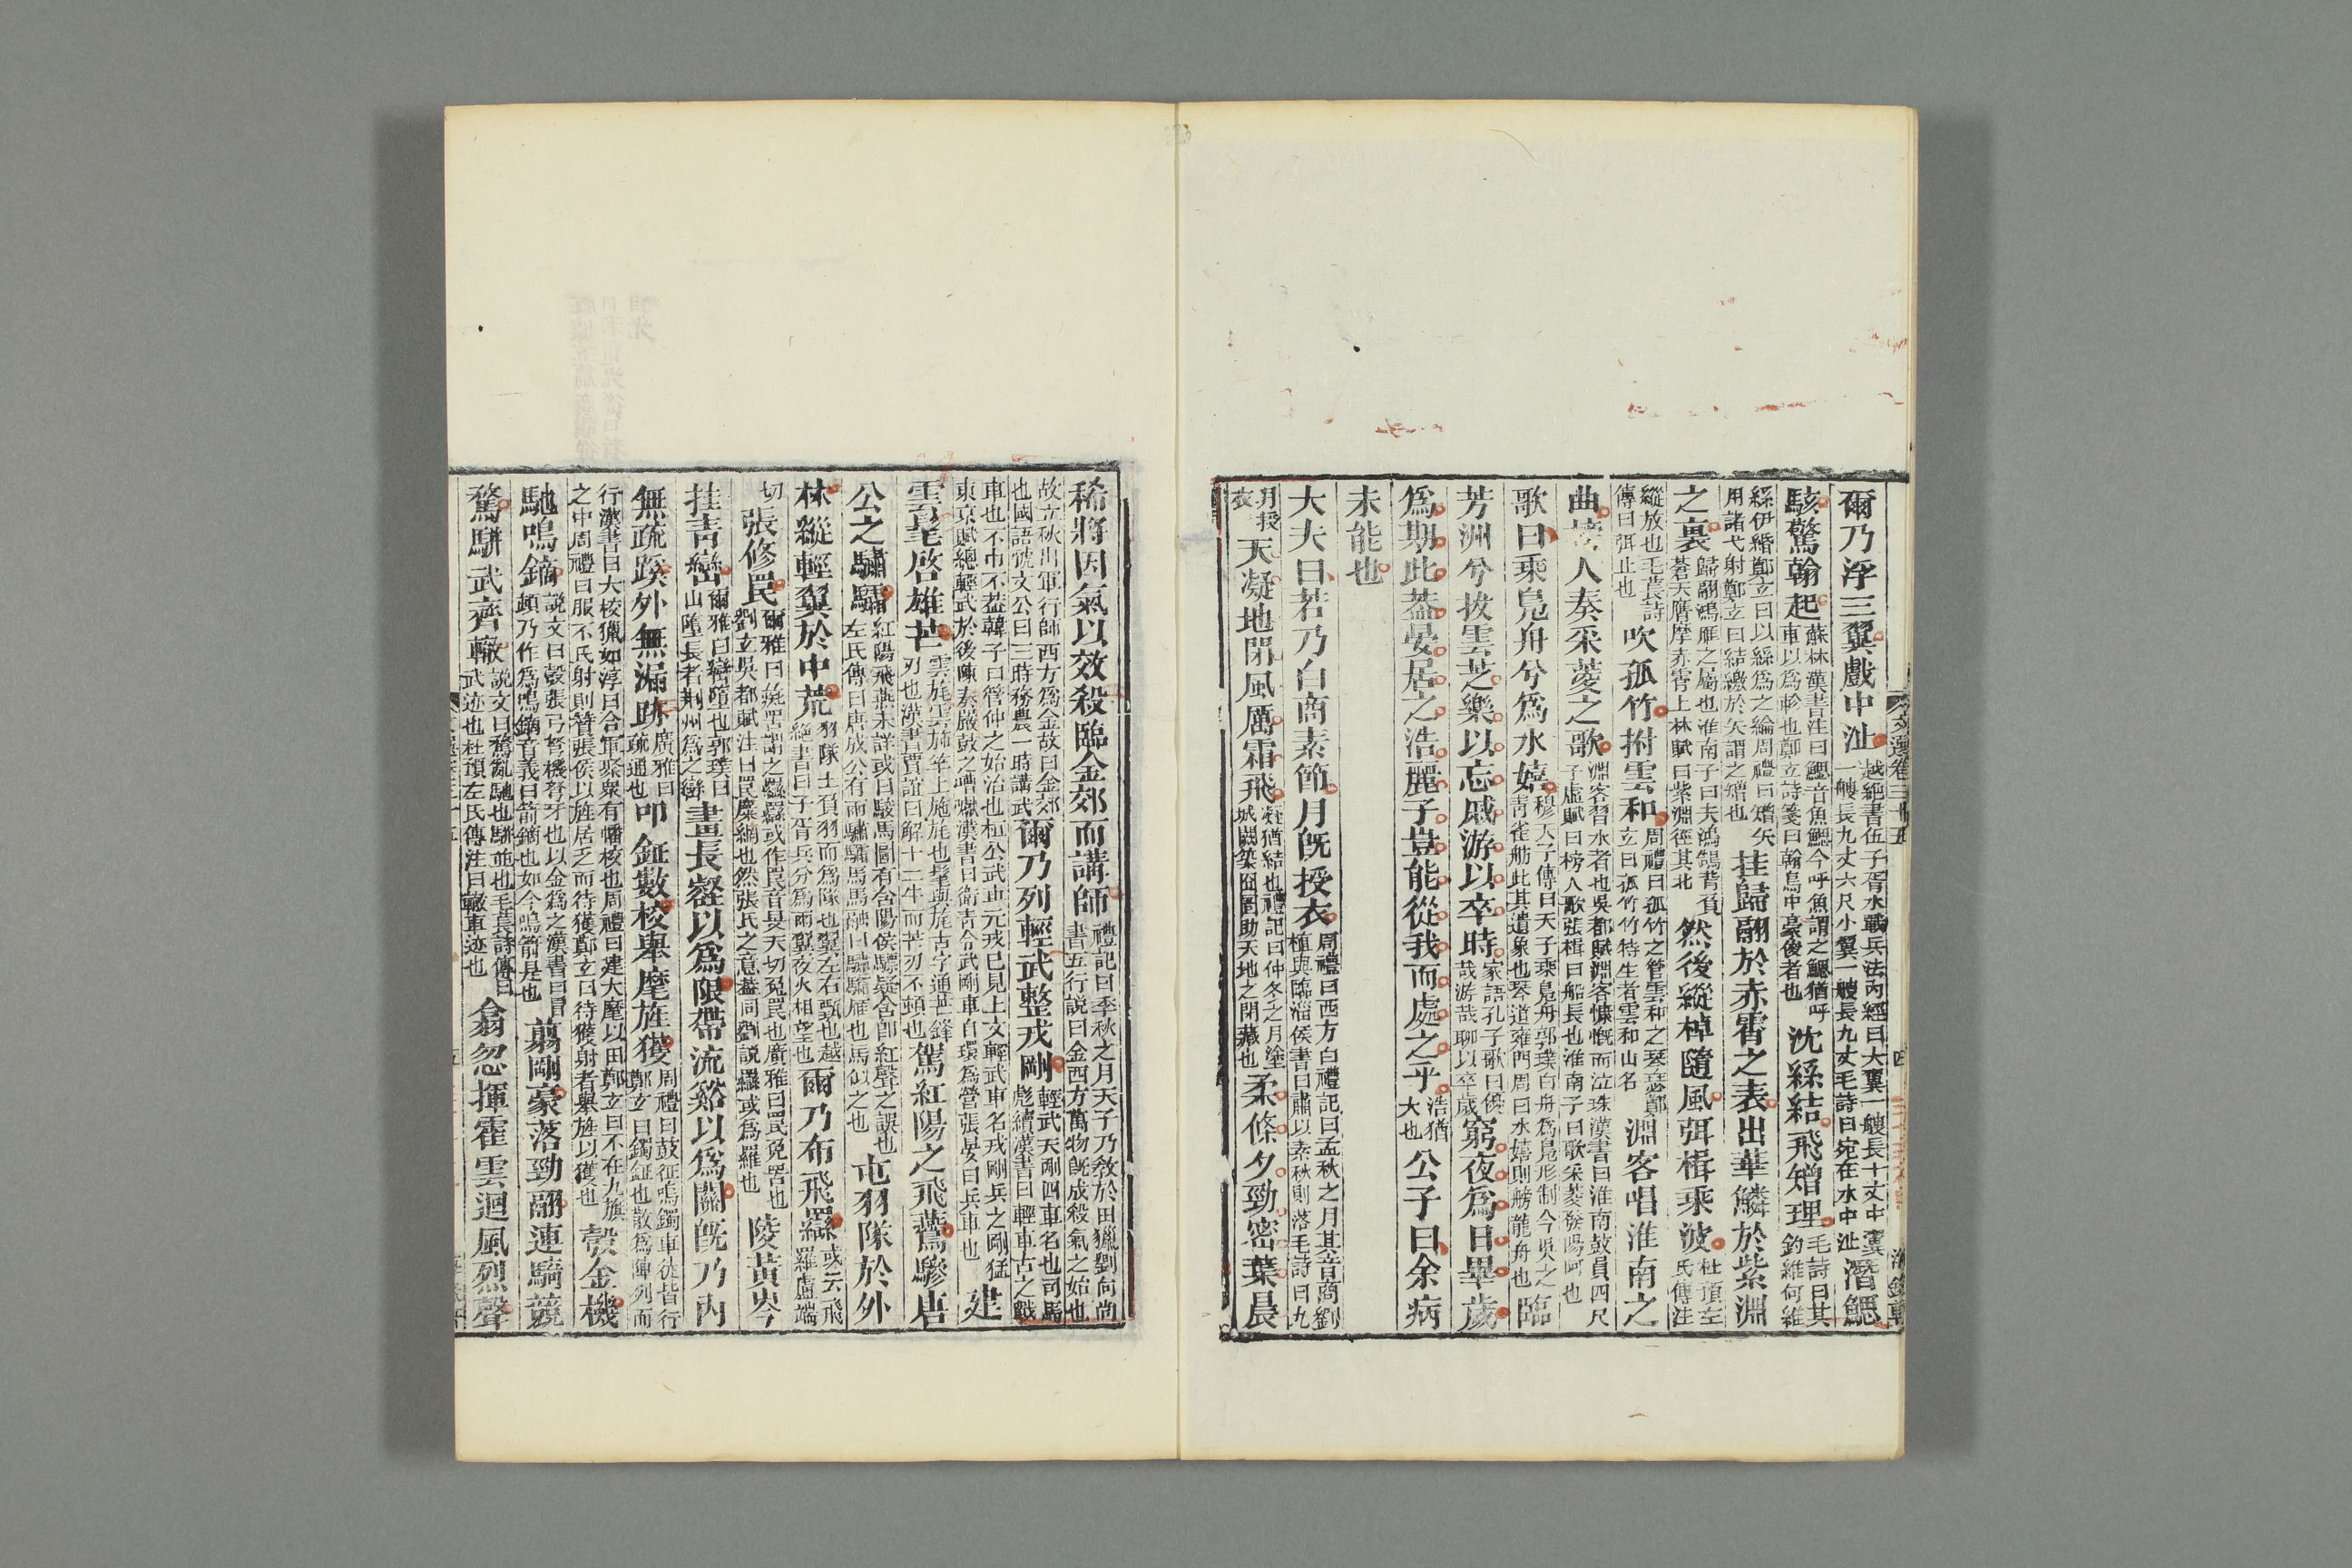 爾乃浮三翼戲中沚越絕書伍子胥水戰兵法內經曰大翼一艘長十丈中翼一艘長九丈六尺小翼一艘長九丈毛詩曰宛在水中沚潛鰓
駭驚翰起蘇林漢書注曰鰓音魚鰓今呼魚謂之鰓猶呼車以為軫也鄭玄詩箋曰翰鳥中豪俊者也沈絲結飛矰理毛詩曰其釣維何維
絲伊緡鄭玄曰以絲為之綸周禮曰矰矢用諸弋射鄭玄曰結繳於矢謂之矰也挂歸翮於赤霄之表出華鱗於紫淵
之裏歸翮鴻雁之屬也淮南子曰夫鴻鵠背負蒼天膺摩赤霄上林賦曰紫淵徑其北然後縱棹隨風弭楫乘波杜預左氏傳注
縱放也毛萇詩傳曰弭止也吹孤竹拊雲和周禮曰孤竹之管雲和之琴瑟鄭玄曰孤竹竹特生者雲和山名淵客唱淮南之
曲榜人奏采菱之歌淵客習水者也吳都賦淵客慷慨而泣珠漢書曰淮南鼓員四尺子虛賦曰榜人歌張楫曰船長也淮南子曰歌采菱發陽阿也
歌曰乘鳧舟兮為水嬉穆天子傳曰天子乘鳧舟郭璞曰舟為鳧形制今吳之青雀舫此其遺象也琴道雍門周曰水嬉則舫龍舟也臨
芳洲兮拔靈芝樂以忘戚游以卒時家語孔子歌曰優哉游哉聊以卒歲窮夜為日畢歲
為期此蓋晏居之浩麗子豈能從我而處之乎浩猶大也公子曰余病
未能也
大夫曰若乃白商素節月既授衣周禮曰西方白禮記曰孟秋之月其音商劉植與臨淄侯書曰肅以素秋則落毛詩曰九
月授衣天凝地閉風厲霜飛凝猶結也禮記曰仲冬之月塗城闕築囹圄助天地之閉藏也柔條夕勁密葉晨
稀將因氣以效殺臨金郊而講師禮記曰季秋之月天子乃教於田獵劉向尚書五行說曰金西方萬物既成殺氣之始也
故立秋出軍行師西方為金故曰金郊也國語虢文公曰三時務農一時講武爾乃列輕武整戎剛輕武天剛四車名也司馬彪續漢書曰輕車古之戰
車也不巾不蓋韓子曰管仲之始治也桓公武車元戎已見上文輕武車名戎剛兵之剛猛東京賦總輕武於後陳奏嚴鼓之嘈囐漢書曰衛青令武剛車自環為營張晏曰兵車也建
雲髦啓雄芒雲旄雲旆竿上施旄也髦與旄古字通芒鋒刃也漢書賈誼曰解十二牛而芒刃不頓也駕紅陽之飛鷰驂唐
公之驌驦紅陽飛燕未詳或曰駿馬圖有含陽侯驃疑含即紅聲之誤也左氏傳曰唐成公有兩驌驦馬馬融曰驌驦雁也馬似之也屯羽隊於外
林縱輕翼於中荒羽隊士負羽而為隊也翼左右甄也越絕書曰子胥兵分為兩翼夜火相望也爾乃布飛羉或云飛羅盧端
切張修罠爾雅曰彘罟謂之羉羉或作罠音旻天切兔罠也廣雅曰罠兔罟也劉玄吳都賦注曰罠麋網也然張氏之意蓋同劉說羉或為羅也陵黃岑
挂青巒爾雅曰巒墮也郭璞曰山墮長者荊州為之巒畫長谿以為限帶流谿以為關既乃內
無疏蹊外無漏跡廣雅曰疏通也叩鉦數校舉麾旌獲周禮曰鼓征鳴鐲車徒皆行鄭玄曰鐲鉦也散為陣列而
行漢書曰大校獵如淳曰合軍聚眾有幡校也周禮曰建大麾以田鄭玄曰不在九旗之中周禮曰服不氏射則贊張侯以旌居乏而待獲鄭玄曰待獲射者舉旌以獲也彀金機
馳鳴鏑說文曰彀張弓弩機弩牙也以金為之漢書曰冒頓乃作為鳴鏑音義曰箭鏑也如今鳴箭是也翦剛豪落勁翮連騎競
騖駢武齊轍說文曰騖亂馳也駢並也毛萇詩傳曰武迹也杜預左氏傳注曰轍車迹也翕忽揮霍雲迴風烈聲